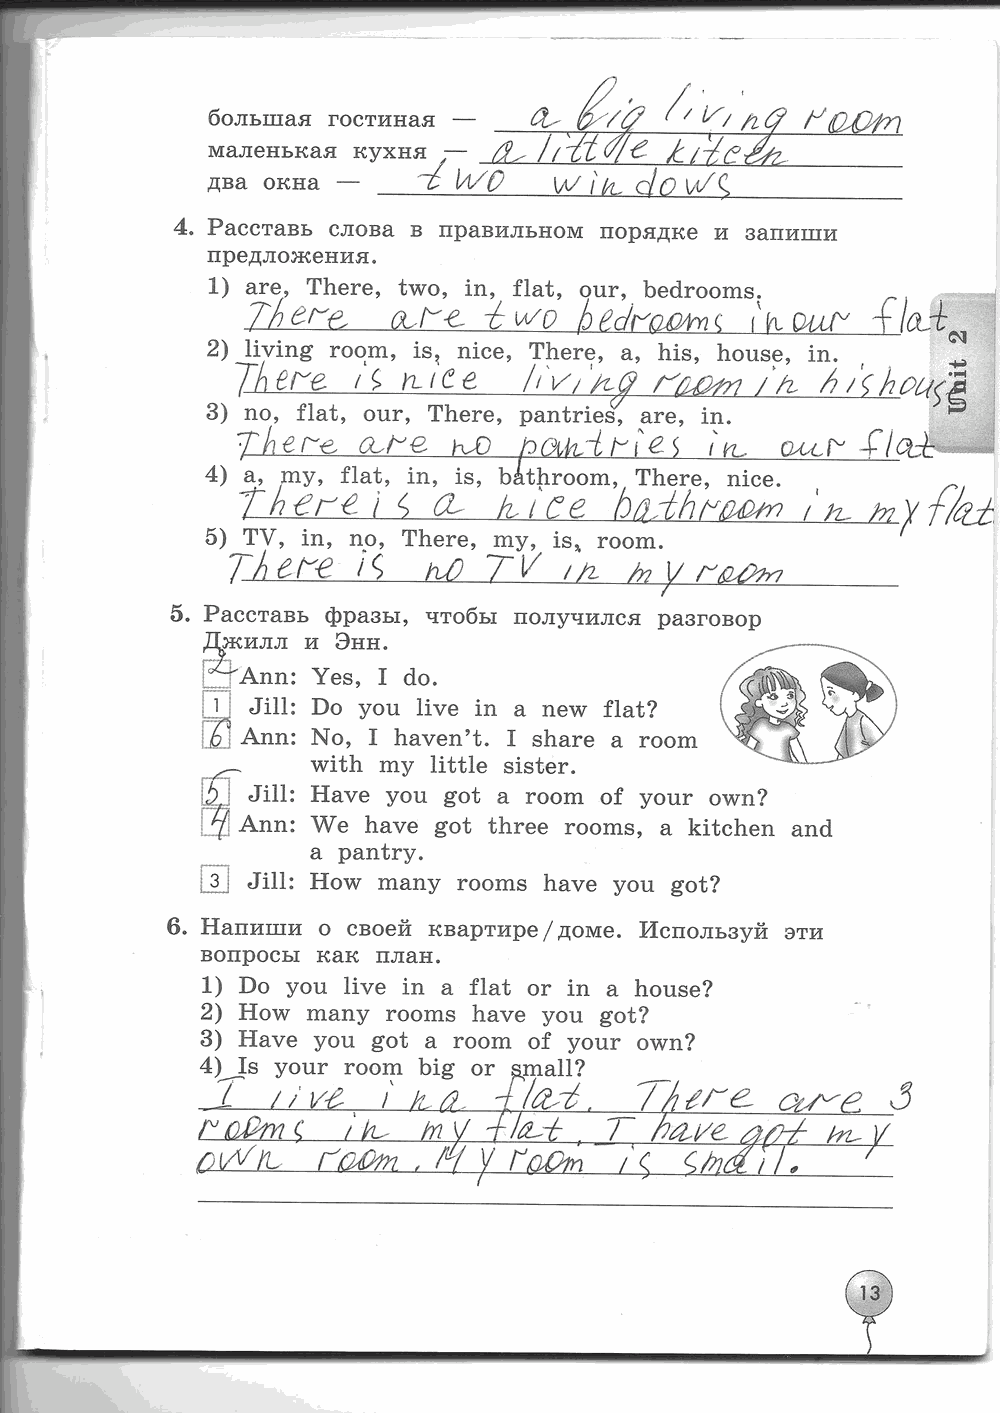 большая гостиная — a big living room
маленькая кухня — a little kitcen
два окна — two windows
4. Расставь слова в правильном порядке и запиши
предложения.
1) are, There, two, in, flat, our, bedrooms.
There are two bedrooms in our flat
2) living room, is, nice, There, a, his, house, in.
There is nice living room in his house
3) no, flat, our, There, pantries, are, in.
There are no pantries in our flat
4) a, my, flat, in, is, bathroom, There, nice.
There is a nice bathroom in my flat
5) TV, in, no, There, my, is, room.
There is no TV in my room
Unit 2
5. Расставь фразы, чтобы получился разговор
Джилл и Энн.
2 Ann: Yes, I do.
1 Jill: Do you live in a new flat?
6 Ann: No, I haven't. I share a room
with my little sister.
5 Jill: Have you got a room of your own?
4 Ann: We have got three rooms, a kitchen and
a pantry.
3 Jill: How many rooms have you got?
6. Напиши о своей квартире/доме. Используй эти
вопросы как план.
1) Do you live in a flat or in a house?
2) How many rooms have you got?
3) Have you got a room of your own?
4) Is your room big or small?
I live in a flat. There are 3
rooms in my flat. I have got my
own room. My room is small.
13